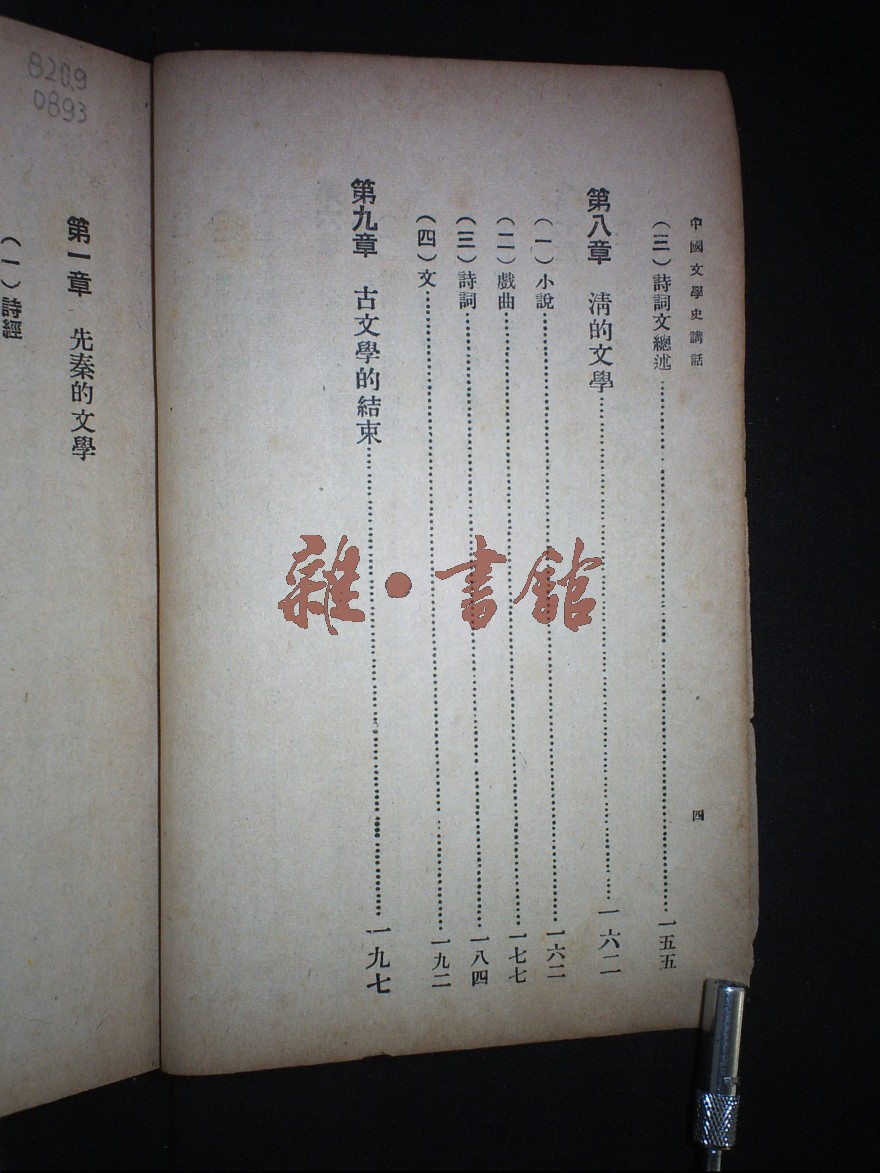 中國文學史講話
四
(三)詩詞文總述……一五五
第八章 淸的文學……一六二
(一)小說……一六二
(二)戲曲……一七七
(三)詩詞……一八四
(四)文……一九二
第九章 古文學的結束……一九七
雜•書館
820.9
0893
第一章 先秦的文學
(一)詩經